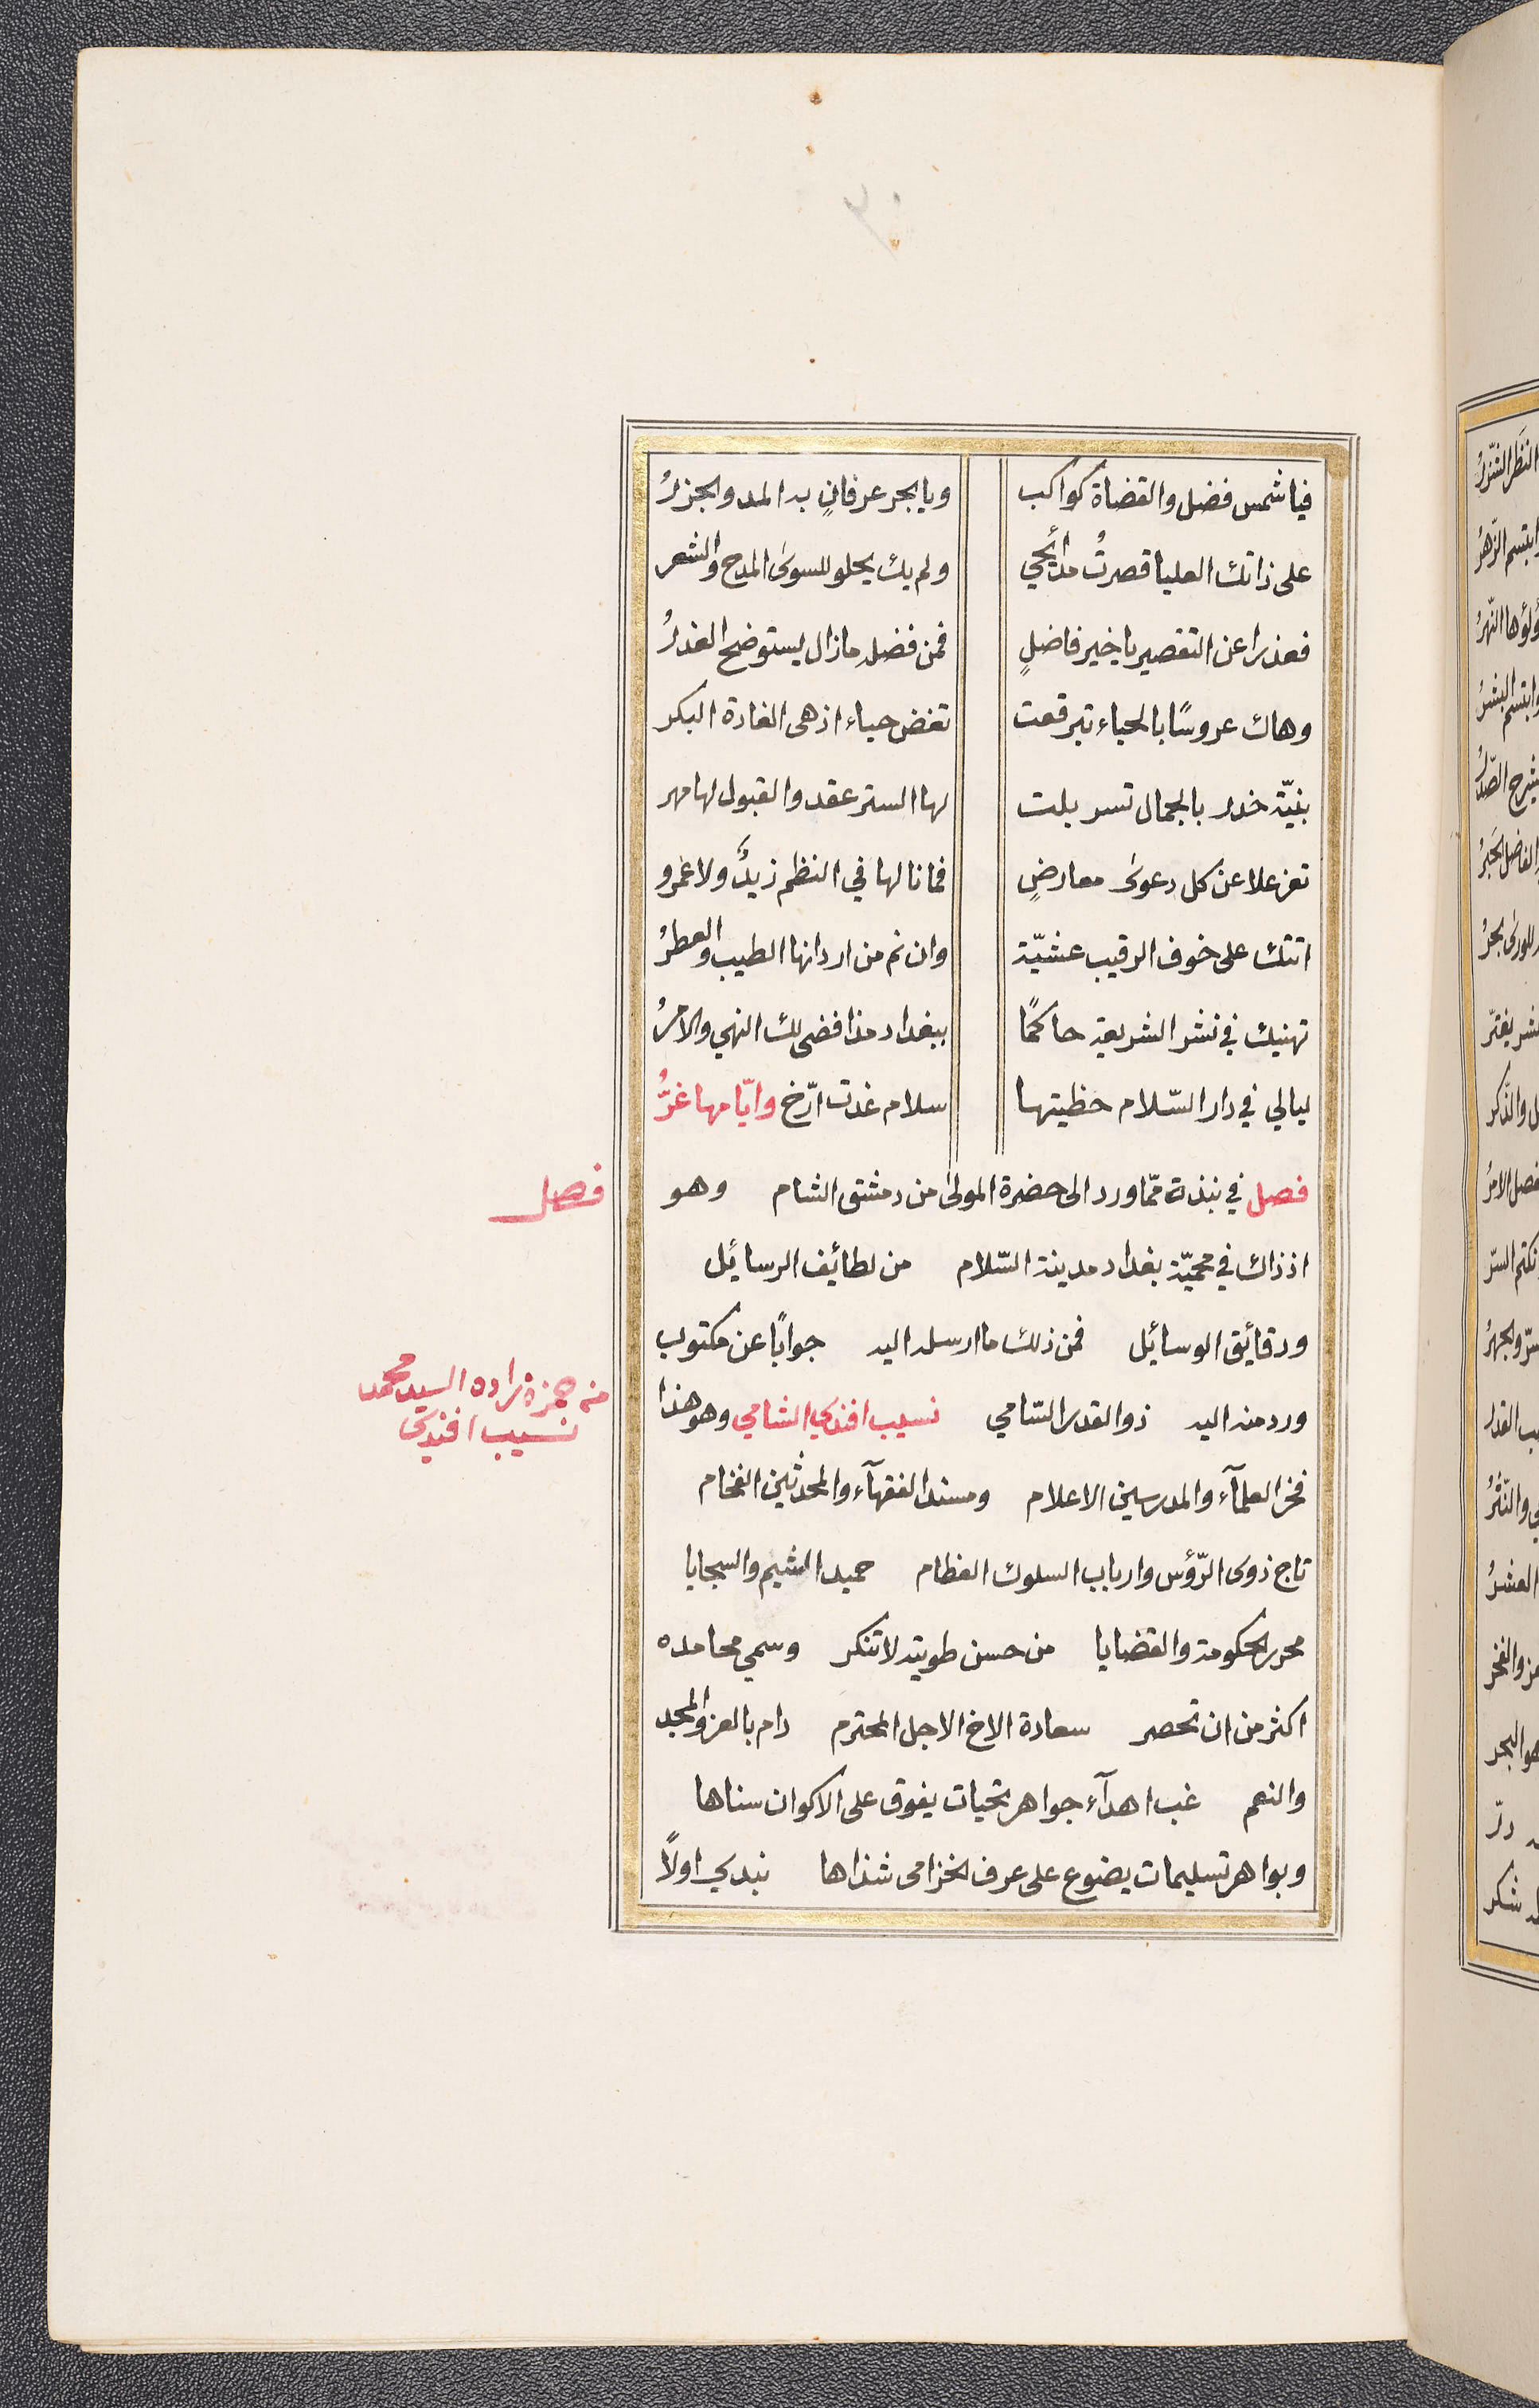 فيا شمس فضل والقضاة كواكب ويا بحر عرفانٍ به المد والجزرُ
على ذاتك العليا قصرتُ مدائحي ولم يك يحلو للسوى المدح والشعر
فعذرا عن التقصير يا خير فاضلٍ فمن فضله مازال يستوضح العذرُ
وهاك عروسًا بالحياء تبرقعت تغض حياء اذ هى الغادة البكر
بنيّة خدر بالجمال تسربلت لها الستر عقد والقبول لها مهر
تعز علا عن كل دعوى معارضٍ فما نالها في النظم زيدٌ ولا عمرو
اتتك على خوف الرقيب عشيّة وان نم من اردانها الطيب والعطرُ
تهنيك في نشر الشريعة حاكمًا ببغداد مذ افضى لك النهي والامرُ
ليالي في دار السّلام حظيتها سلام غدت ارّخ وايّامها غرُّ
فصل في نبذة ممّا ورد الى حضرة المولى من دمشق الشام وهو
فصل
اذ ذاك في محميّة بغداد مدينة السّلام من لطائف الرسائل
ودقائق الوسائل فمن ذلك ما ارسله اليه جوابًا عن مكتوب
ورد منه اليه ذو القدر السّامي نسيب افندي الشامي وهو هذا
منه حمزه زاده السيد محمد
نسيب افندى
فخر العلمآء والمدرسين الاعلام ومسند الفقهآء والمحدثين الفخام
تاج ذوى الرّؤس وارباب السلوك العظام حميد الشيم والسجايا
محرر الحكومة والقضايا من حسن طويته لا تنكر وسمي محامده
اكثر من ان تحصر سعادة الاخ الاجل المحترم دام بالعز والمجد
والنعم غب اهدآء جواهر تحيات يفوق على الاكوان سناها
وبواهر تسليمات يضوع على عرف الخزامى شذاها نبدي اولًا